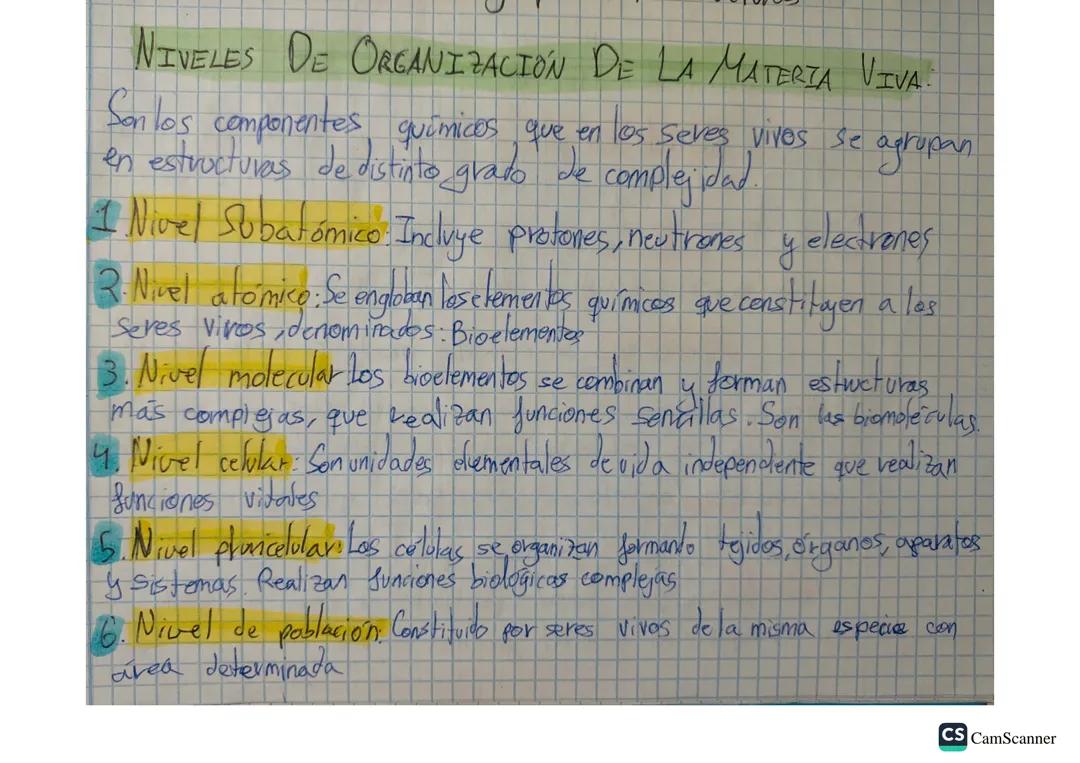 NIVELES DE ORGANIZACIÓN DE LA MATERIA VIVA:
Son los componentes químicos que en los seres vivos se agrupan
en estructuras de distinto grado de complejidad.
1 Nivel Subatómico: Incluye protones, neutrones y electrones
2. Nivel atómico: Se engloban los elementos químicos que constituyen a los
seres vivos, denominados: Bioelementos
3. Nivel molecular: Los bioelementos se combinan y forman estructuras
más complejas, que realizan funciones sencillas. Son las biomoléculas.
4. Nivel celular: Son unidades elementales de vida independiente que realizan
funciones vitales
5. Nivel pluricelular: Las células se organizan formando tejidos, órganos, aparatos
y sistemas. Realizan funciones biológicas complejas
6. Nivel de población: Constituido por seres vivos de la misma especie con
área determinada
CS CamScanner